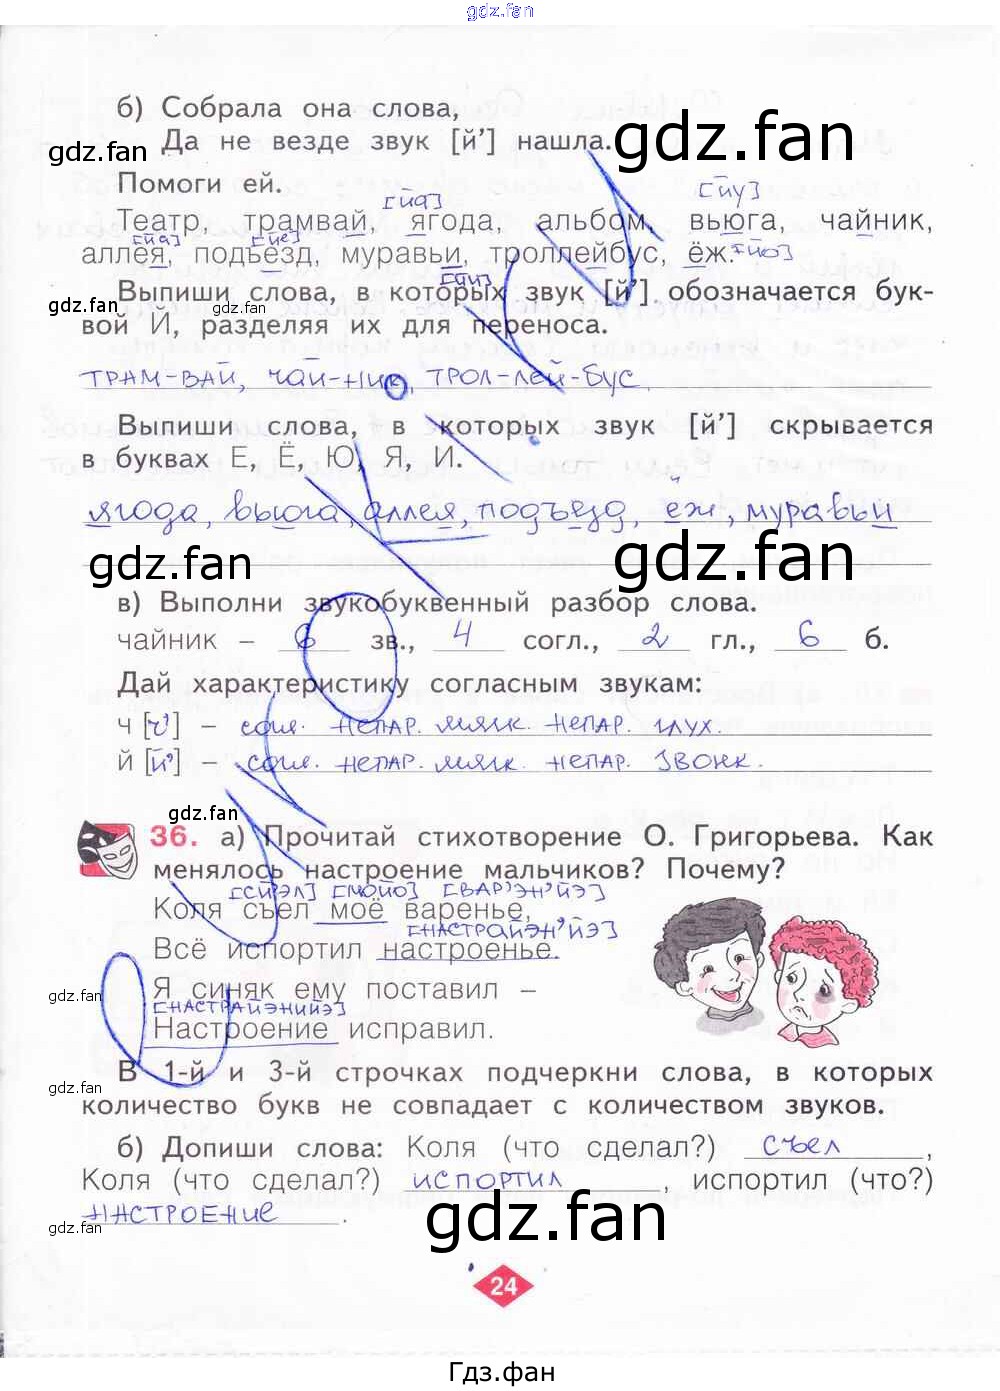 gdz.fan
б) Собрала она слова,
Да не везде звук [й’] нашла.
gdz.fan
gdz.fan
Помоги ей.
[йа] [йу]
Театр, трамвай, ягода, альбом, вьюга, чайник,
[йа] [йе]
аллея, подъезд, муравьи, троллейбус, ёж. [йо]
[йи]
Выпиши слова, в которых звук [й’] обозначается бук-
gdz.fan gdz.fan
вой Й, разделяя их для переноса.
ТРАМ-ВАЙ, ЧАЙ-НИК, ТРОЛ-ЛЕЙ-БУС.
Выпиши слова, в которых звук [й’] скрывается
в буквах Е, Ё, Ю, Я, И.
ягода, вьюга, аллея, подъезд, ёж, муравьи
gdz.fan gdz.fan
в) Выполни звукобуквенный разбор слова.
чайник – 6 зв., 4 согл., 2 гл., 6 б.
Дай характеристику согласным звукам:
ч [ч’] – согл. НЕПАР. мягк. НЕПАР. ГЛУХ.
й [й’] – согл. НЕПАР. мягк. НЕПАР. ЗВОНК.
gdz.fan
36. а) Прочитай стихотворение О. Григорьева. Как
менялось настроение мальчиков? Почему?
[СЙЭЛ] [МОЙО] [ВАР’ЭН’ЙЭ]
Коля съел моё варенье,
[НАСТРАЙЭН’ЙЭ]
Всё испортил настроенье.
gdz.fan
Я синяк ему поставил –
[НАСТРАЙЭНИЙЭ]
Настроение исправил.
В 1-й и 3-й строчках подчеркни слова, в которых
gdz.fan
количество букв не совпадает с количеством звуков.
б) Допиши слова: Коля (что сделал?) СЪЕЛ,
Коля (что сделал?) ИСПОРТИЛ, испортил (что?)
НАСТРОЕНИЕ.
gdz.fan gdz.fan
24
Гдз.фан